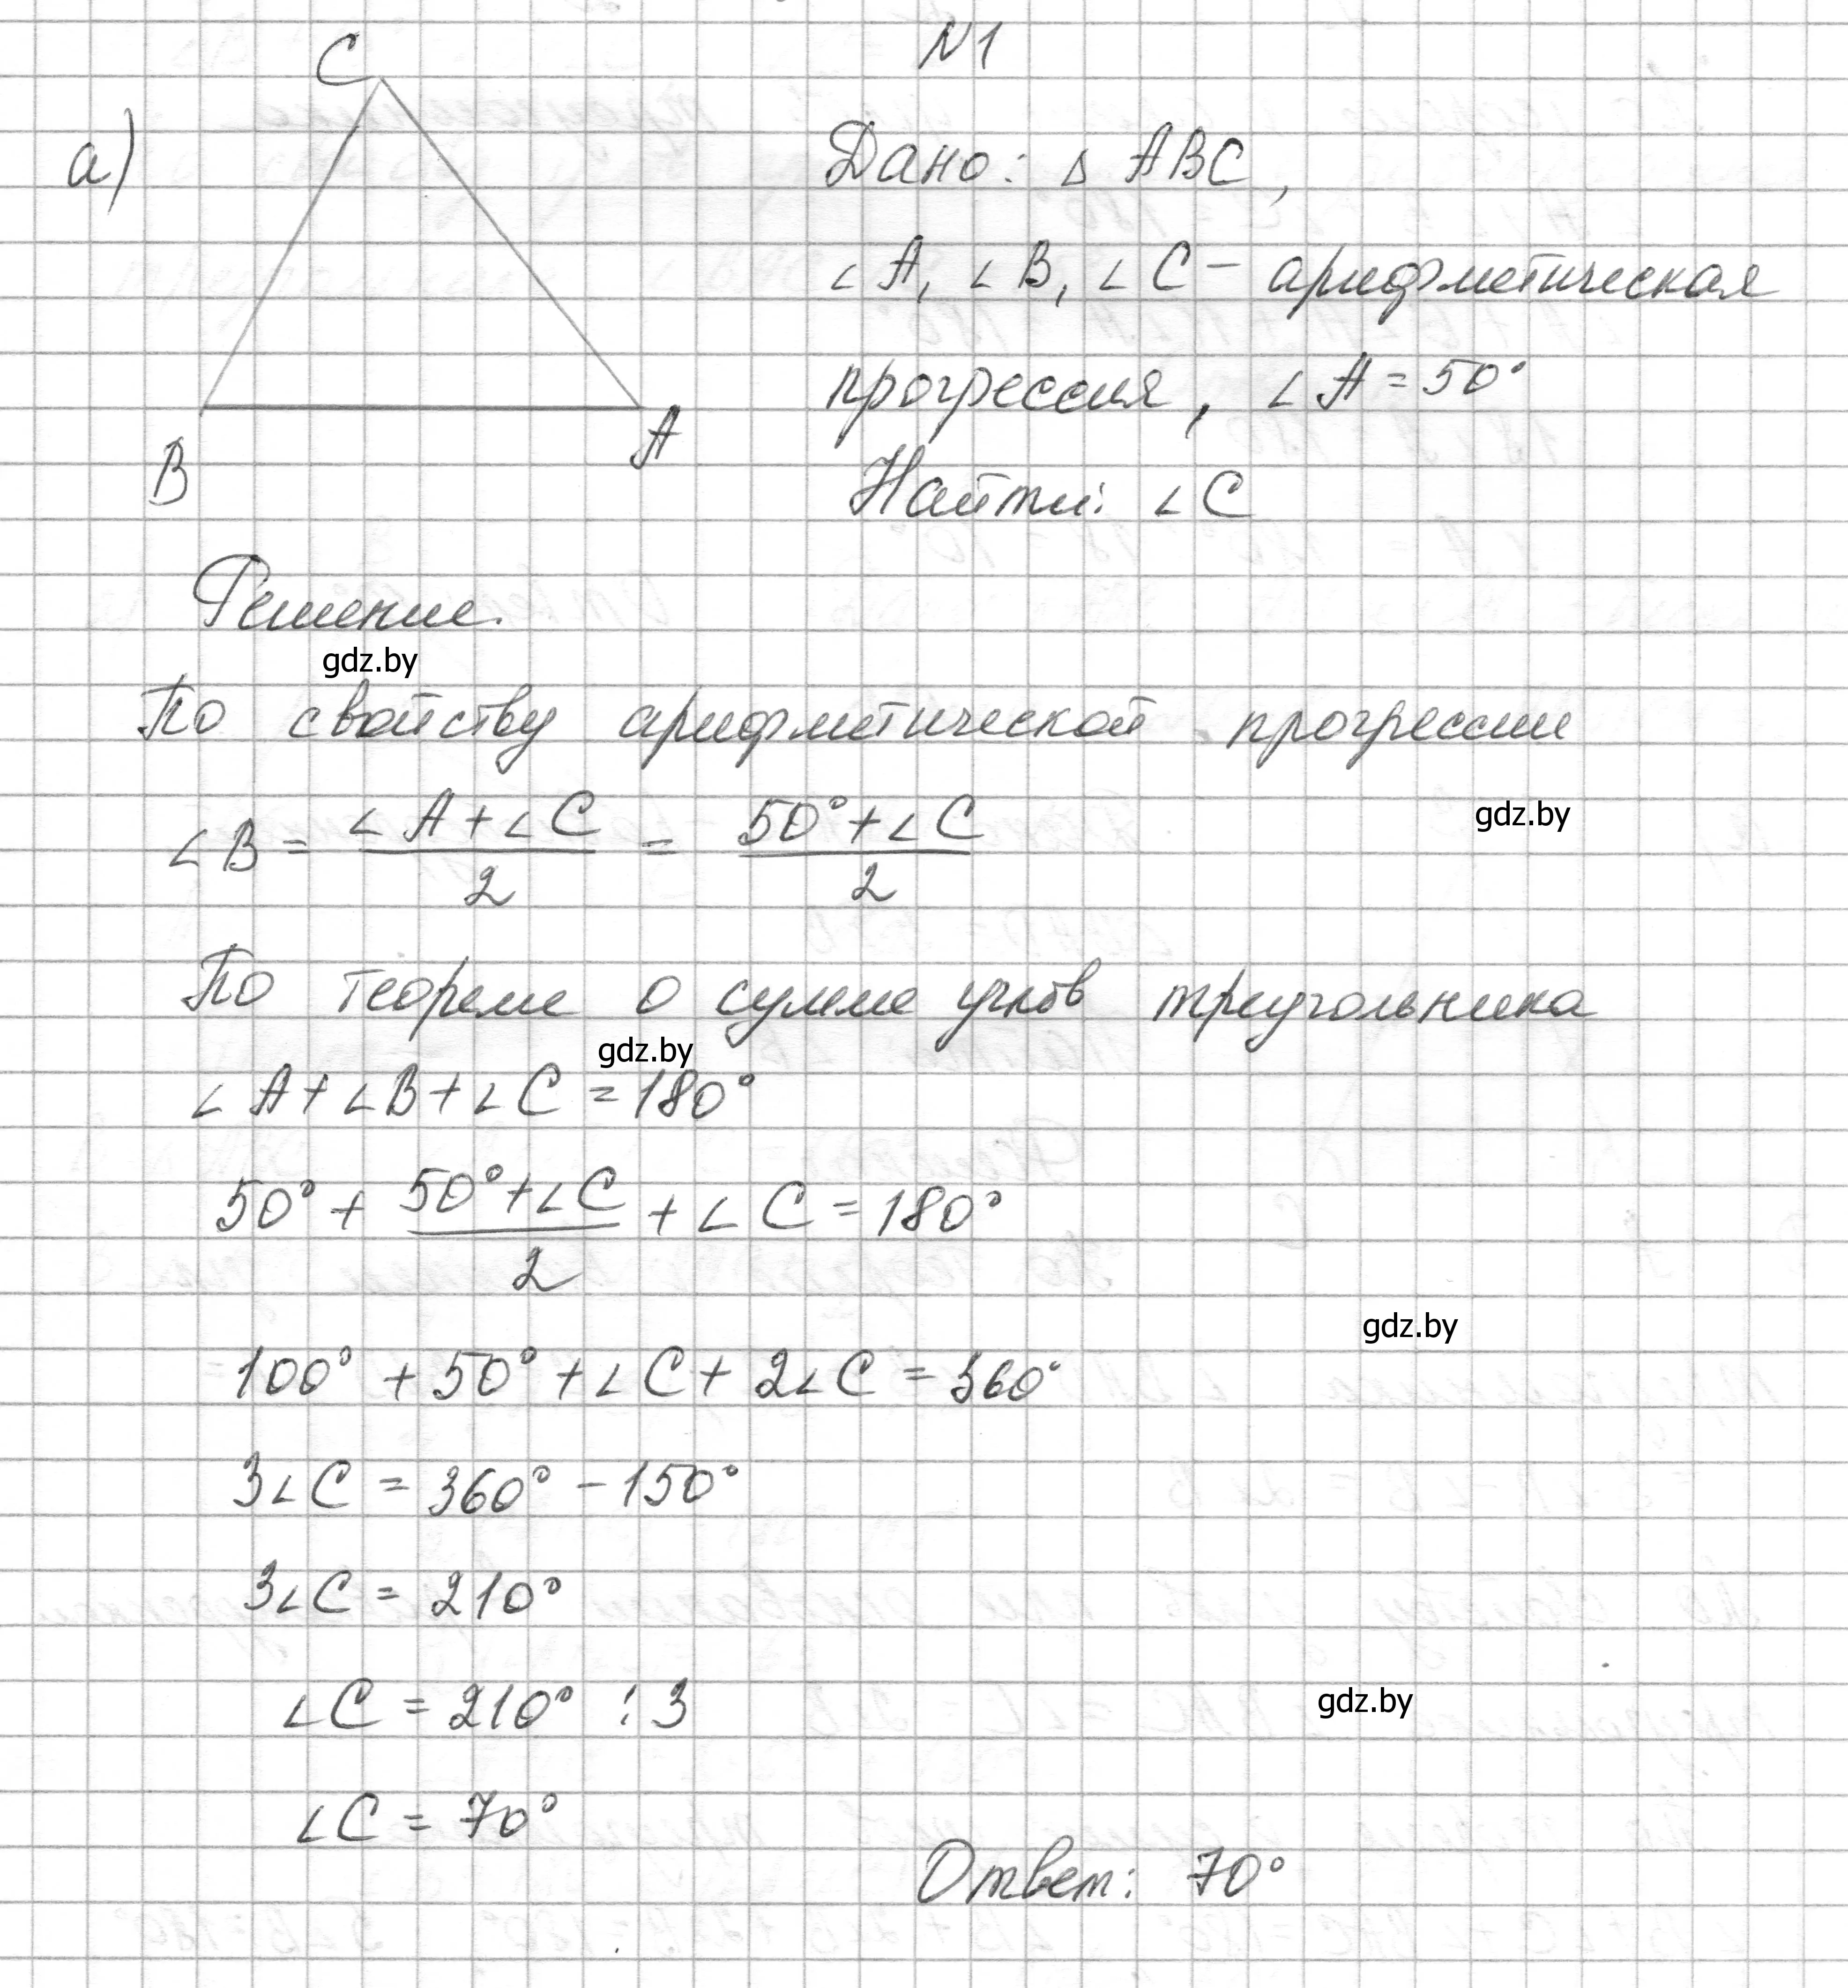 N1
C
а)
Дано: △ ABC,
∠A, ∠B, ∠C – арифметическая
прогрессия, ∠A = 50°
B
A
Найти: ∠C
Решение.
gdz.by
По свойству арифметической прогрессии
∠B = (∠A + ∠C)/2 = (50° + ∠C)/2
gdz.by
По теореме о сумме углов треугольника
gdz.by
∠A + ∠B + ∠C = 180°
50° + (50° + ∠C)/2 + ∠C = 180°
gdz.by
100° + 50° + ∠C + 2∠C = 360°
3∠C = 360° – 150°
3∠C = 210°
∠C = 210° : 3
gdz.by
∠C = 70°
Ответ: 70°